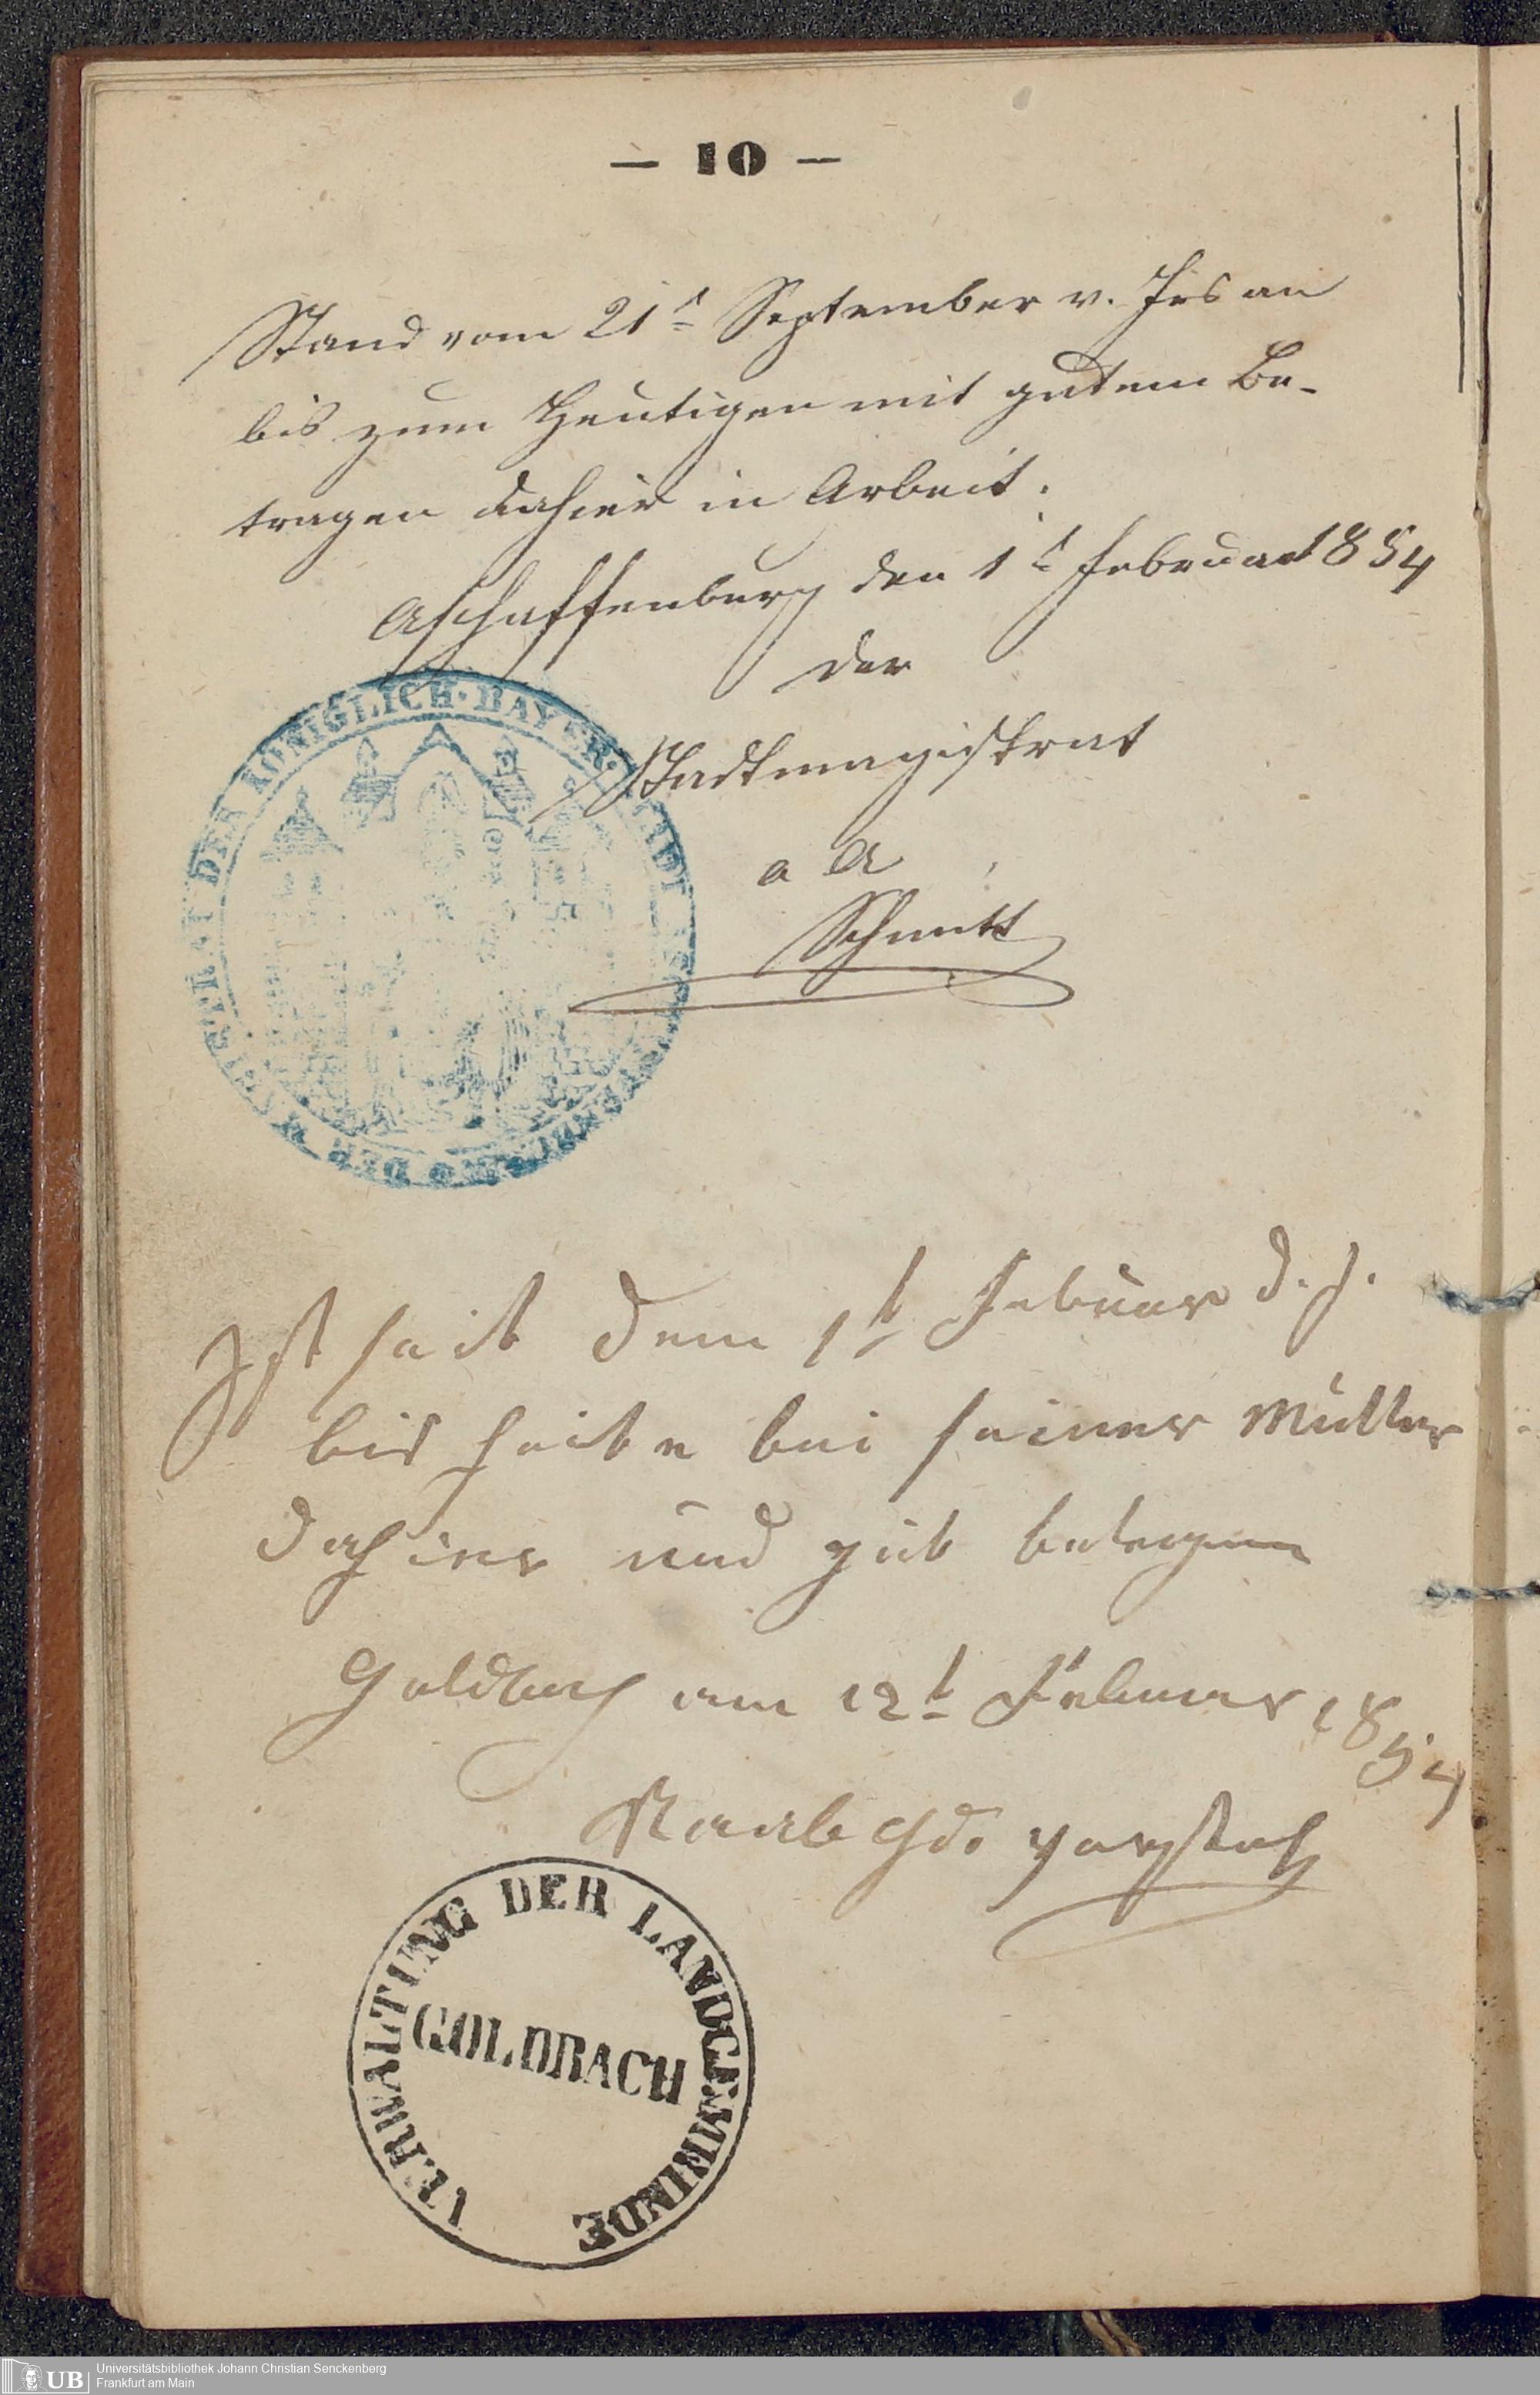 — 10 —
Stand vom 21t September v. Jrs an
bis zum Heutigen mit gutem Be-
tragen dahier in Arbeit.
Aschaffenburg den 1t Februar 1854
der
Stadtmagistrat
a A
Schmitt
DER KÖNIGLICH. BAYER.
Ist seit dem 1t Februar d. J.
bis heite bei seiner Mutter
dahier und gut betragen
Goldbach am 12t Februar 1854
Raab Gd. Vorstah
VERWALTUNG DER LANDGEMEINDE
GOLDBACH
UB
Universitätsbibliothek Johann Christian Senckenberg
Frankfurt am Main